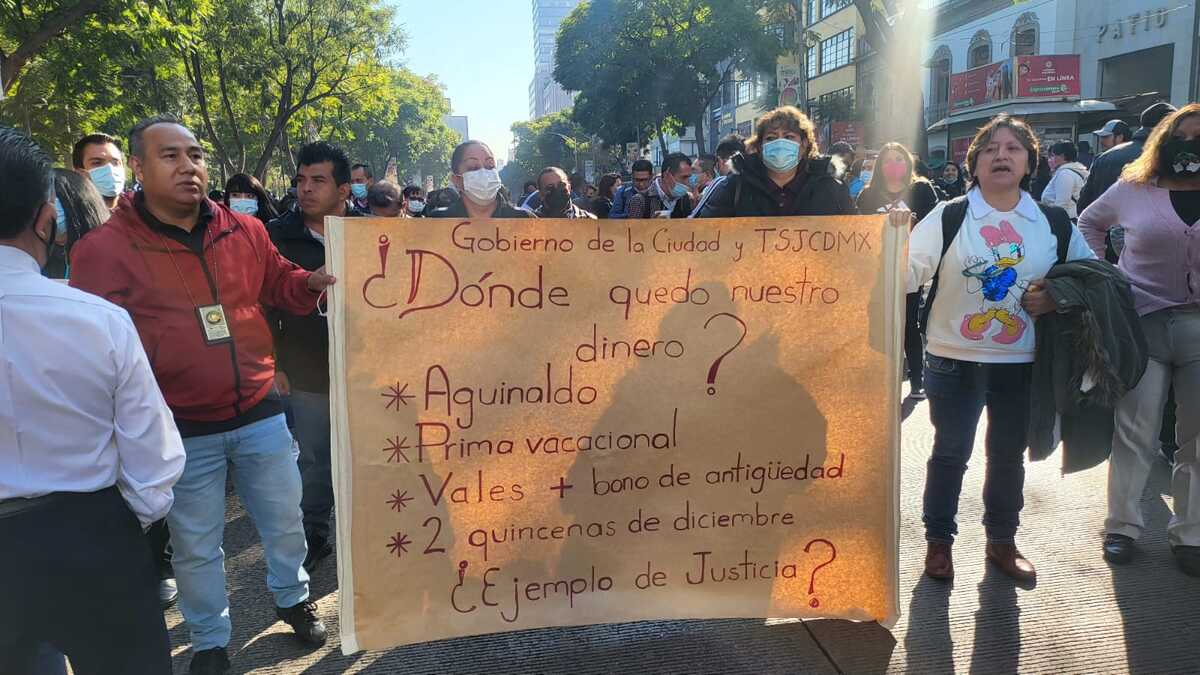 Gobierno de la Ciudad y TSJCDMX
¿Dónde quedo nuestro
dinero?
* Aguinaldo
* Prima vacacional
* Vales + bono de antigüedad
* 2 quincenas de diciembre
¿Ejemplo de Justicia?
PATIO
EN LÍNEA